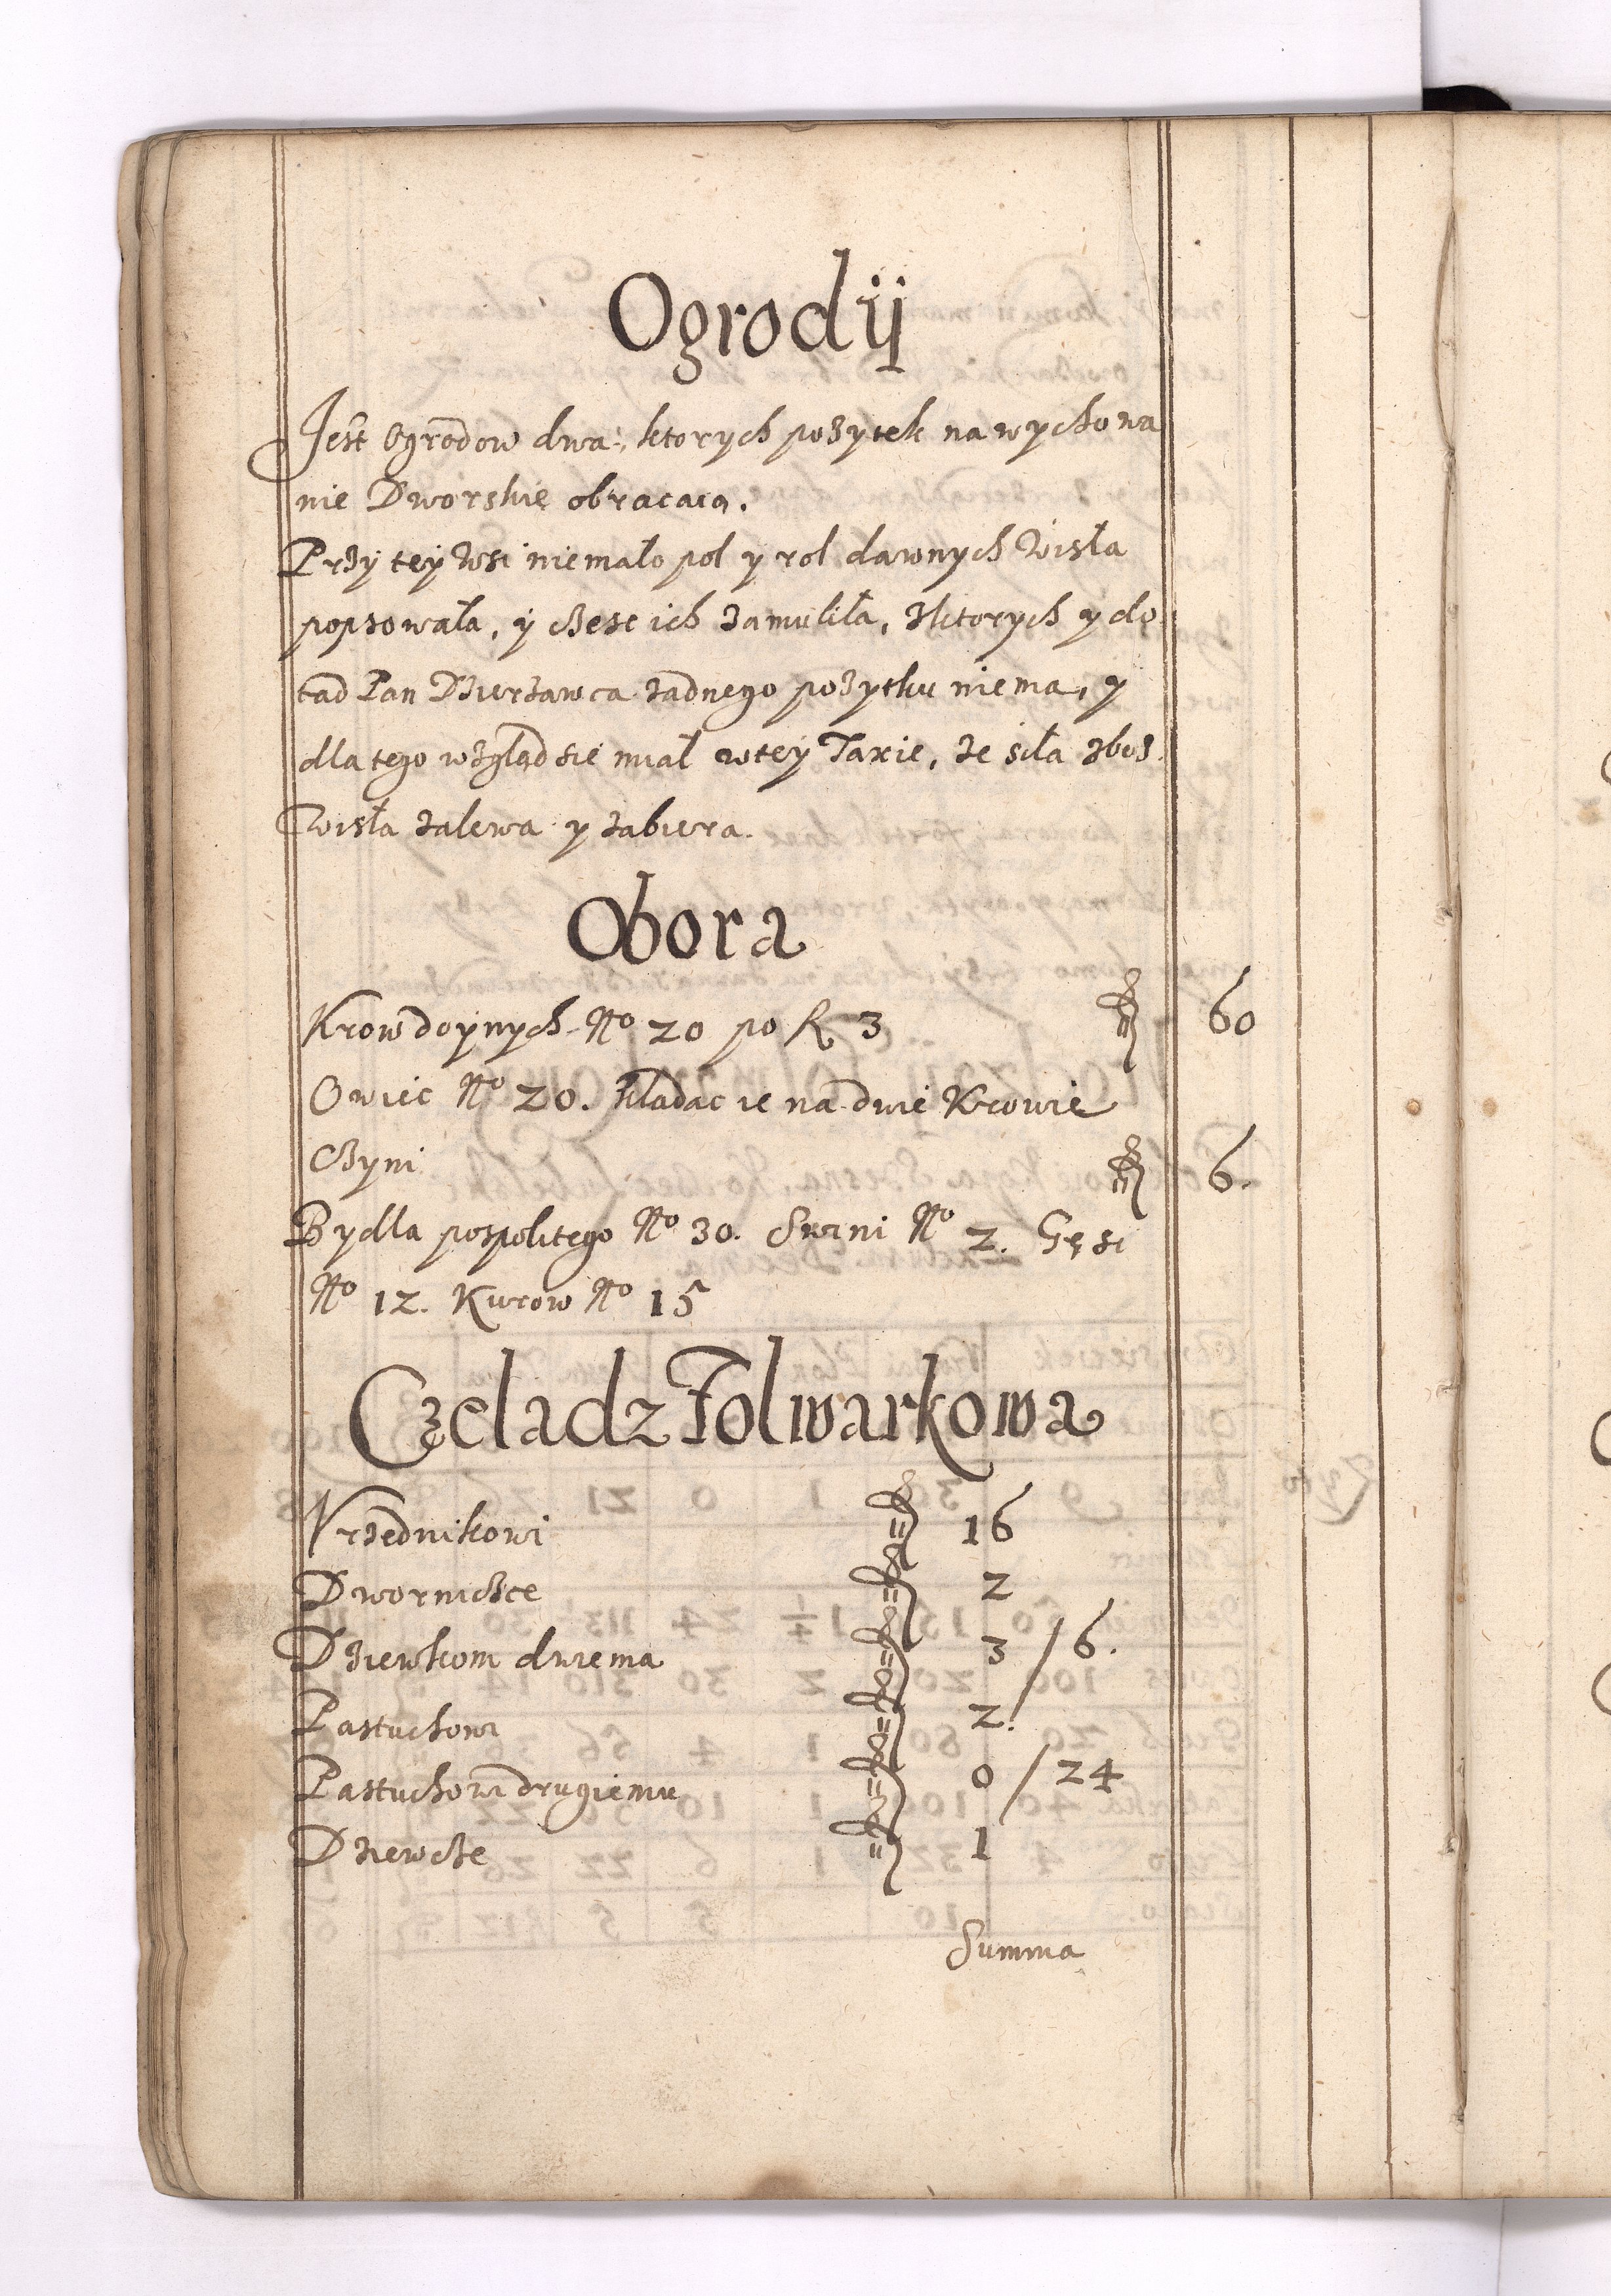 Ogrodÿ
Jest Ogrodow dwa, ktorych pozytek na wychowa
nie Dworskie obracaią.
Przy teÿ Wsi niemało pol y rol dawnych Wisła
popsowała, ÿ czesc ich zamuliła, zktorych y do
tad Pan Dzierzawca zadnego pozytku niema, y
dla tego wzgląd sie miał wteÿ Taxie, ze siła zboz
Wisła zalewa y zabiera.
Obora
Krow doÿnych No 20 po R 3 60
Owiec No 20. kladac ie na dwie Krowie
Czyni 6.
Bydla pospolitego No 30. Swini No 2. Gęsi
No 12. Kurow No 15
Czeladz Folwarkowa
Vrzednikowi 16
Dworniczce 2
Dziewkom dwiema 3 / 6.
Pastuchowi 2.
Pastuchowi drugiemu 0 / 24
Dziewcze 1
Summa